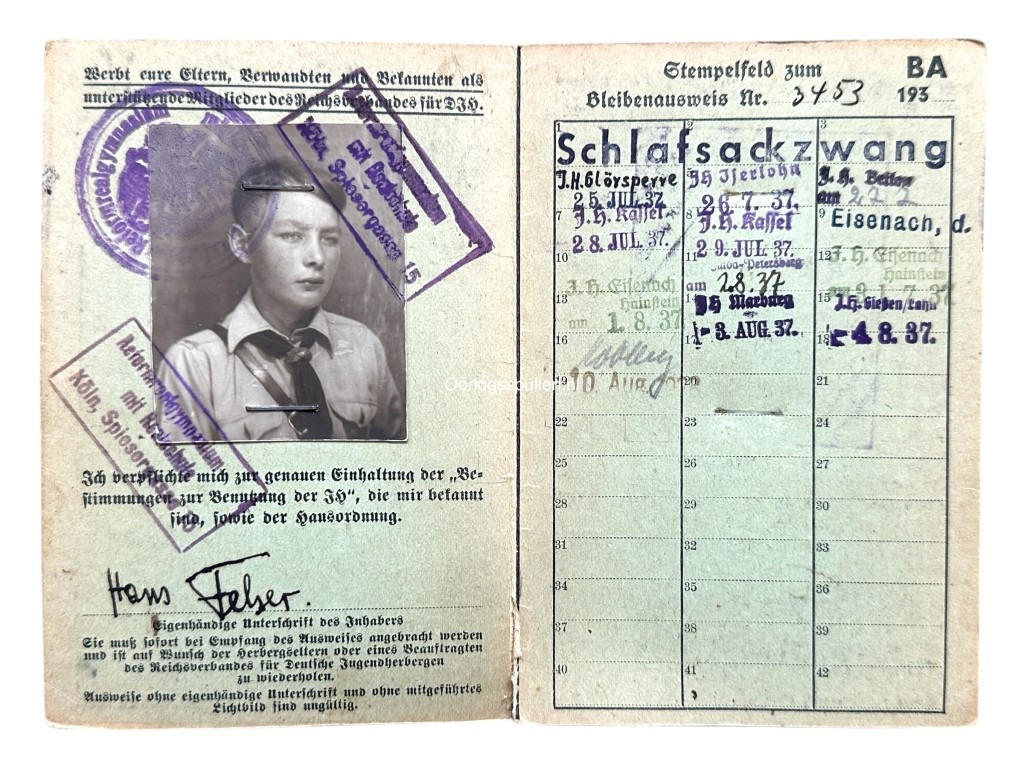 Werbt eure Eltern, Verwandten und Bekannten als
unterstützende Mitglieder des Reichsverbandes für DJH.
Reformrealgymnasium
Reformrealgymnasium
mit Realschule
Köln, Spiesergasse 15
Reformrealgymnasium
mit Realschule
Köln, Spiesergasse 15
Ich verpflichte mich zur genauen Einhaltung der „Be-
stimmungen zur Benutzung der JH“, die mir bekannt
sind, sowie der Hausordnung.
Hans Felser.
Eigenhändige Unterschrift des Inhabers
Sie muß sofort bei Empfang des Ausweises angebracht werden
und ist auf Wunsch der Herbergseltern oder eines Beauftragten
des Reichsverbandes für Deutsche Jugendherbergen
zu wiederholen.
Ausweise ohne eigenhändige Unterschrift und ohne mitgeführtes
Lichtbild sind ungültig.
Stempelfeld zum BA
Bleibenausweis Nr. 3453 193
1 2 3
Schlafsackzwang
J.H. Glörsperre JH Iserlohn J. H.
25. JUL. 37. 26. 7. 37. am 27 7
7 8 9
J. H. Kassel J. H. Kassel Eisenach, d.
28. JUL. 37. 29. JUL. 37.
10 11 12
Petersberg J. H. Eisenach
J. H. Eisenach am 2.8.37 Hainstein
Hainstein 37
13 15
am 1. 8. 37 JH Marburg J.H. Gießen/Lahn
3. AUG. 37. 4. 8. 37.
16 18
Koblenz
19 20 21
10. Aug.
Oorlogsspullen.nl
22 23 24
25 26 27
28 29 30
31 32 33
34 35 36
37 38 39
40 41 42